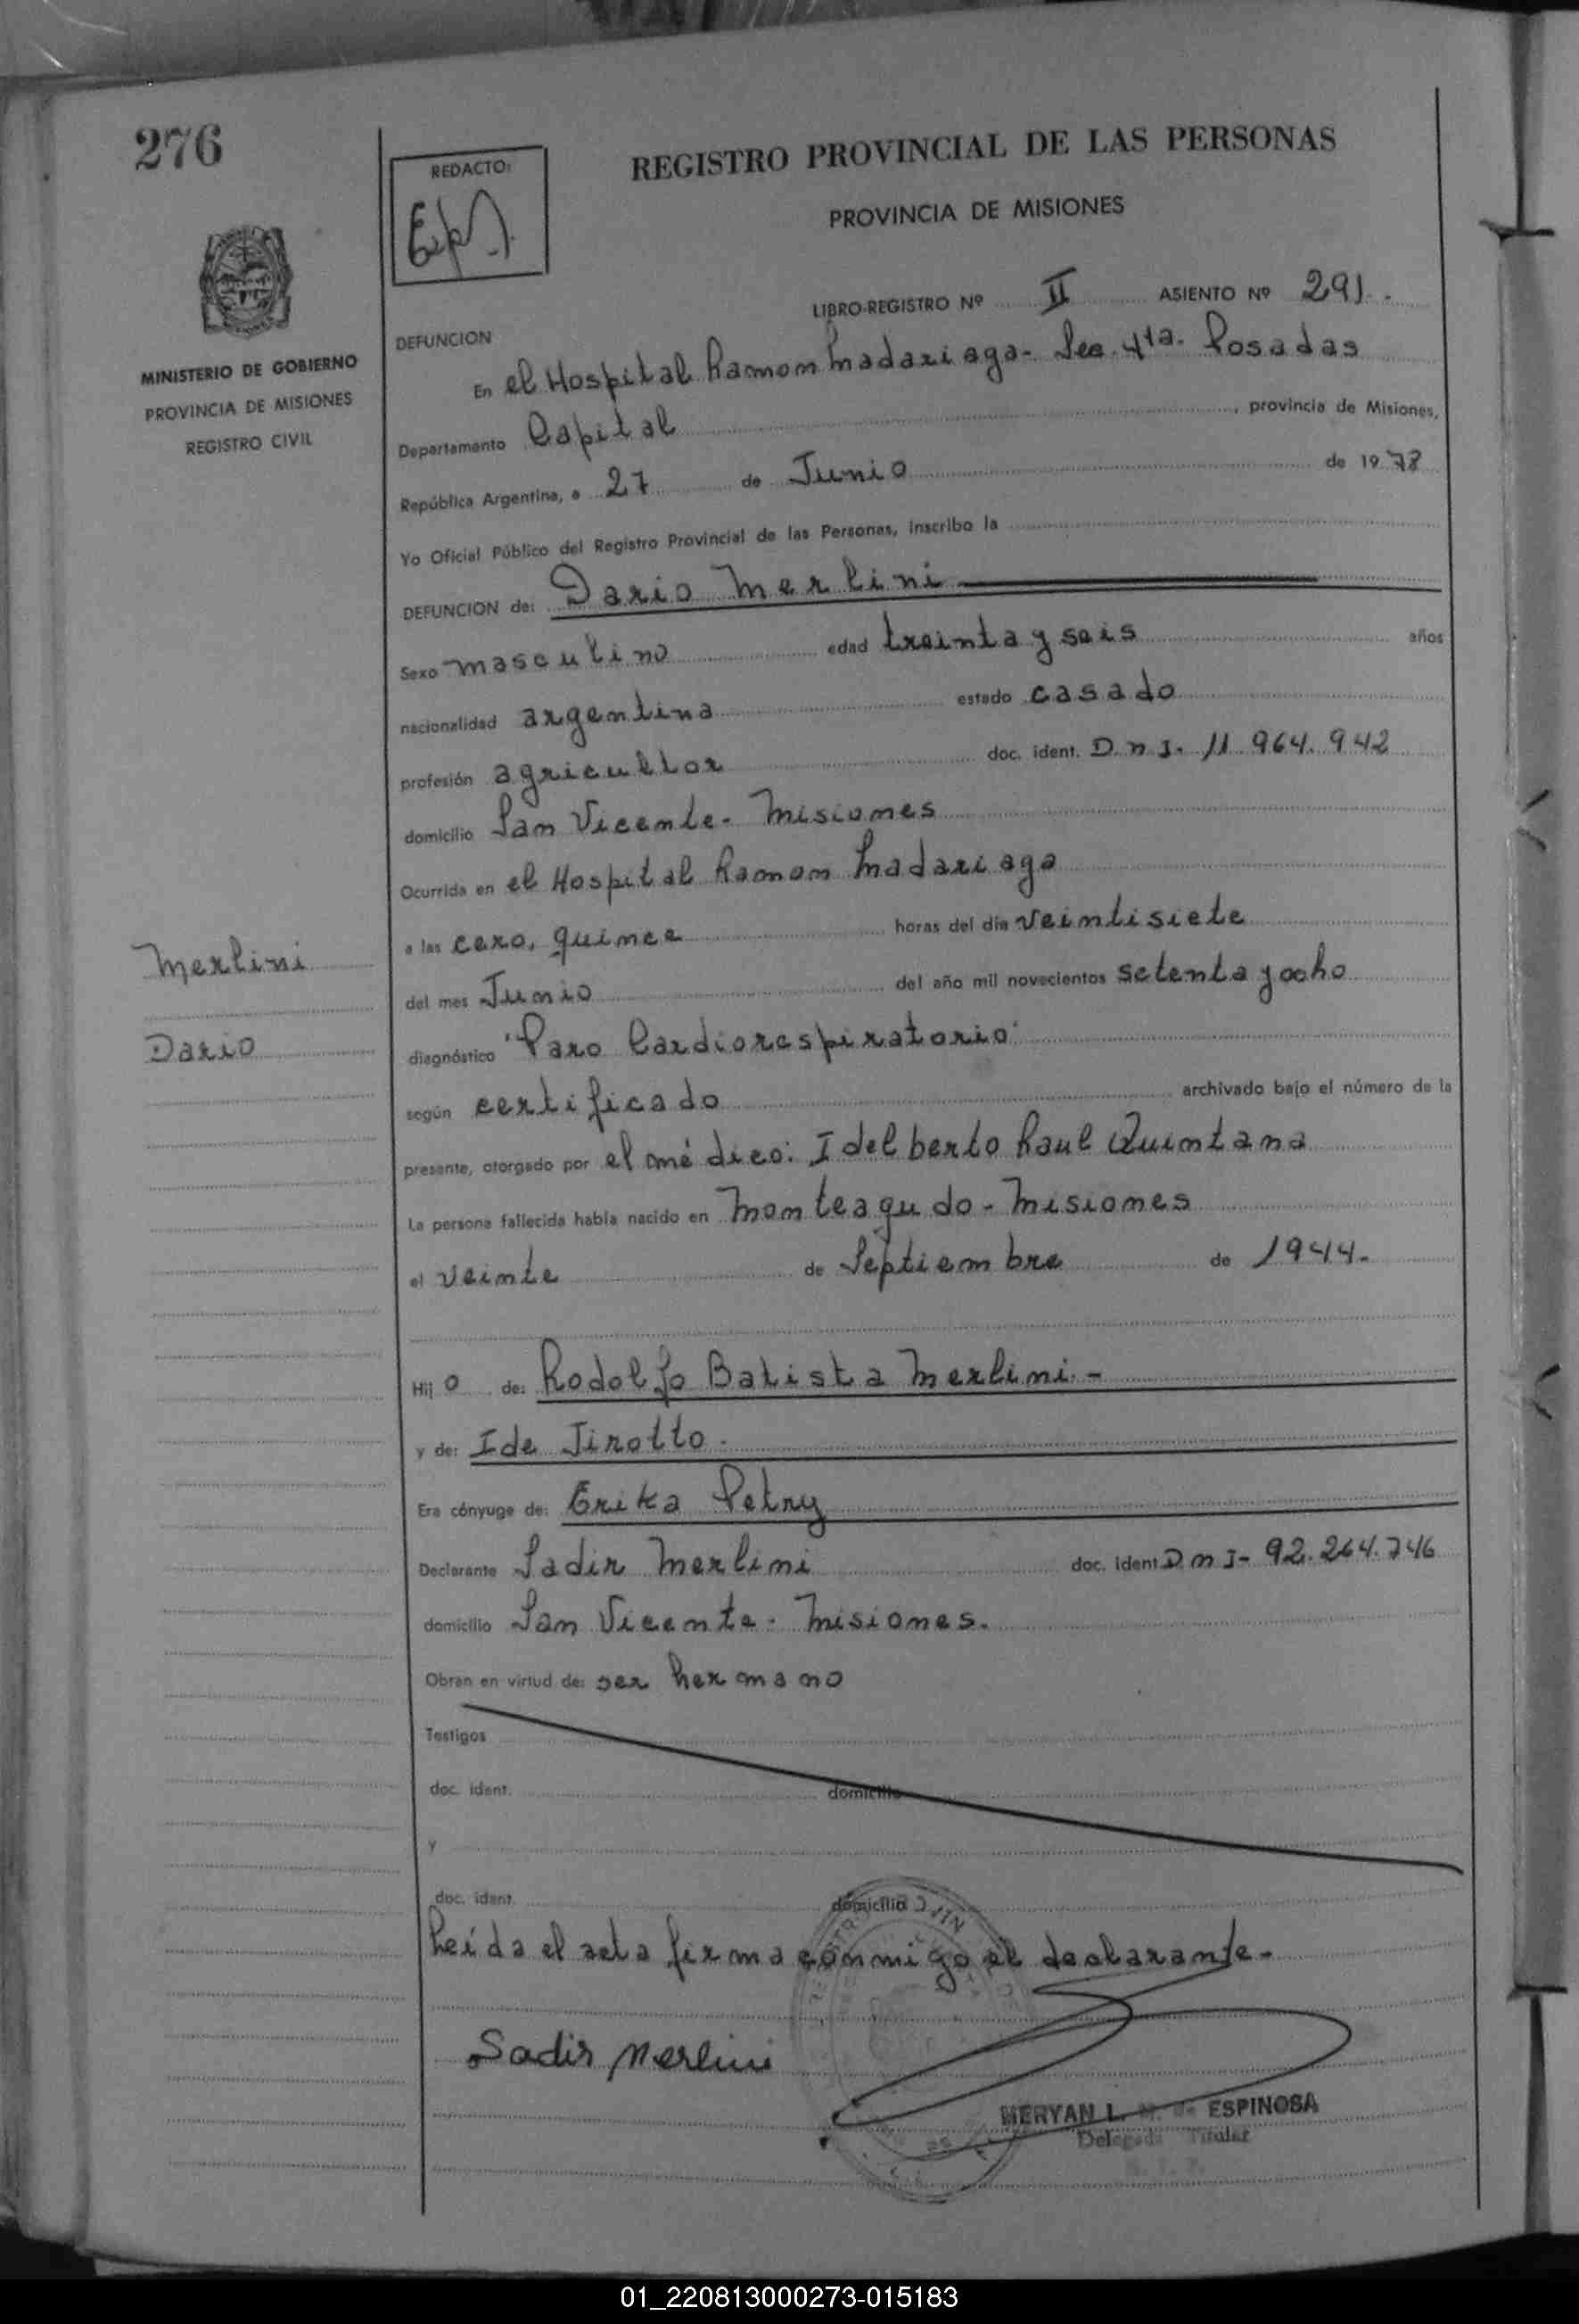 276
REDACTO:
REGISTRO PROVINCIAL DE LAS PERSONAS
PROVINCIA DE MISIONES
MINISTERIO DE GOBIERNO
PROVINCIA DE MISIONES
REGISTRO CIVIL
LIBRO-REGISTRO Nº II ASIENTO Nº 291.
DEFUNCION
En el Hospital Ramon Madariaga- Sec. 4ta. Posadas
Departamento Capital, provincia de Misiones,
República Argentina, a 27 de Junio de 1978
Yo Oficial Público del Registro Provincial de las Personas, inscribo la
DEFUNCION de: Dario Merlini
Sexo masculino edad treinta y seis años
nacionalidad argentina estado casado
profesión agricultor doc. ident. D.n.I. 11.964.942
domicilio San Vicente- Misiones
Ocurrida en el Hospital Ramon Madariaga
a las cero, quince horas del día veintisiete
del mes Junio del año mil novecientos setenta y ocho
Merlini
Dario
diagnóstico "Paro Cardiorespiratorio"
según certificado archivado bajo el número de la
presente, otorgado por el médico: Idelberto Raul Quintana
La persona fallecida había nacido en Monteagudo- Misiones
el veinte de Septiembre de 1944.
Hijo de: Rodolfo Batista Merlini.-
y de: Ide Tirotto.
Era cónyuge de: Erika Petry
Declarante Sadir Merlini doc. ident. D n I- 92.264.746
domicilio San Vicente- Misiones.
Obran en virtud de: ser hermano
Testigos
doc. ident. domicilio
y
doc. ident. domicilio
Leída el acta firma conmigo el declarante-
Sadir Merlini
MERYAN L. ESPINOSA
Delegada Titular
01_220813000273-015183